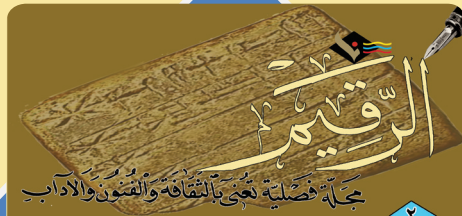 الرَّقِيم
مَجَلَّة فَصْلِيَّة تُعْنَى بِالثَّقَافَة وَالْفُنُون وَالْآدَاب
٢